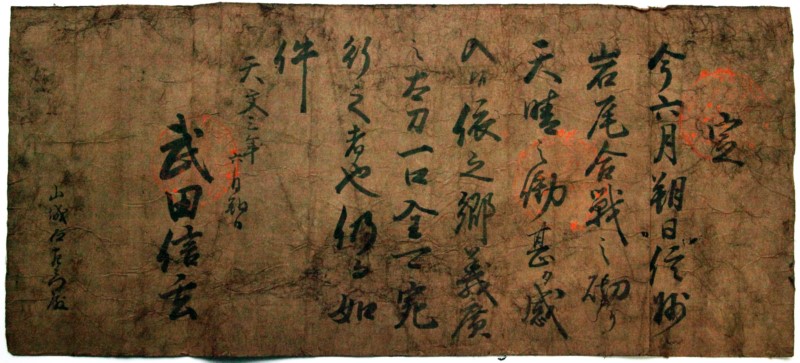 宣
今六月朔日信州
岩尾合戦之砌り
天晴之働甚タ感
入候依之郷義廣
之太刀一口全可宛
行之者也仍而如
件
天文三年
六月朔日
武田信玄
山殿